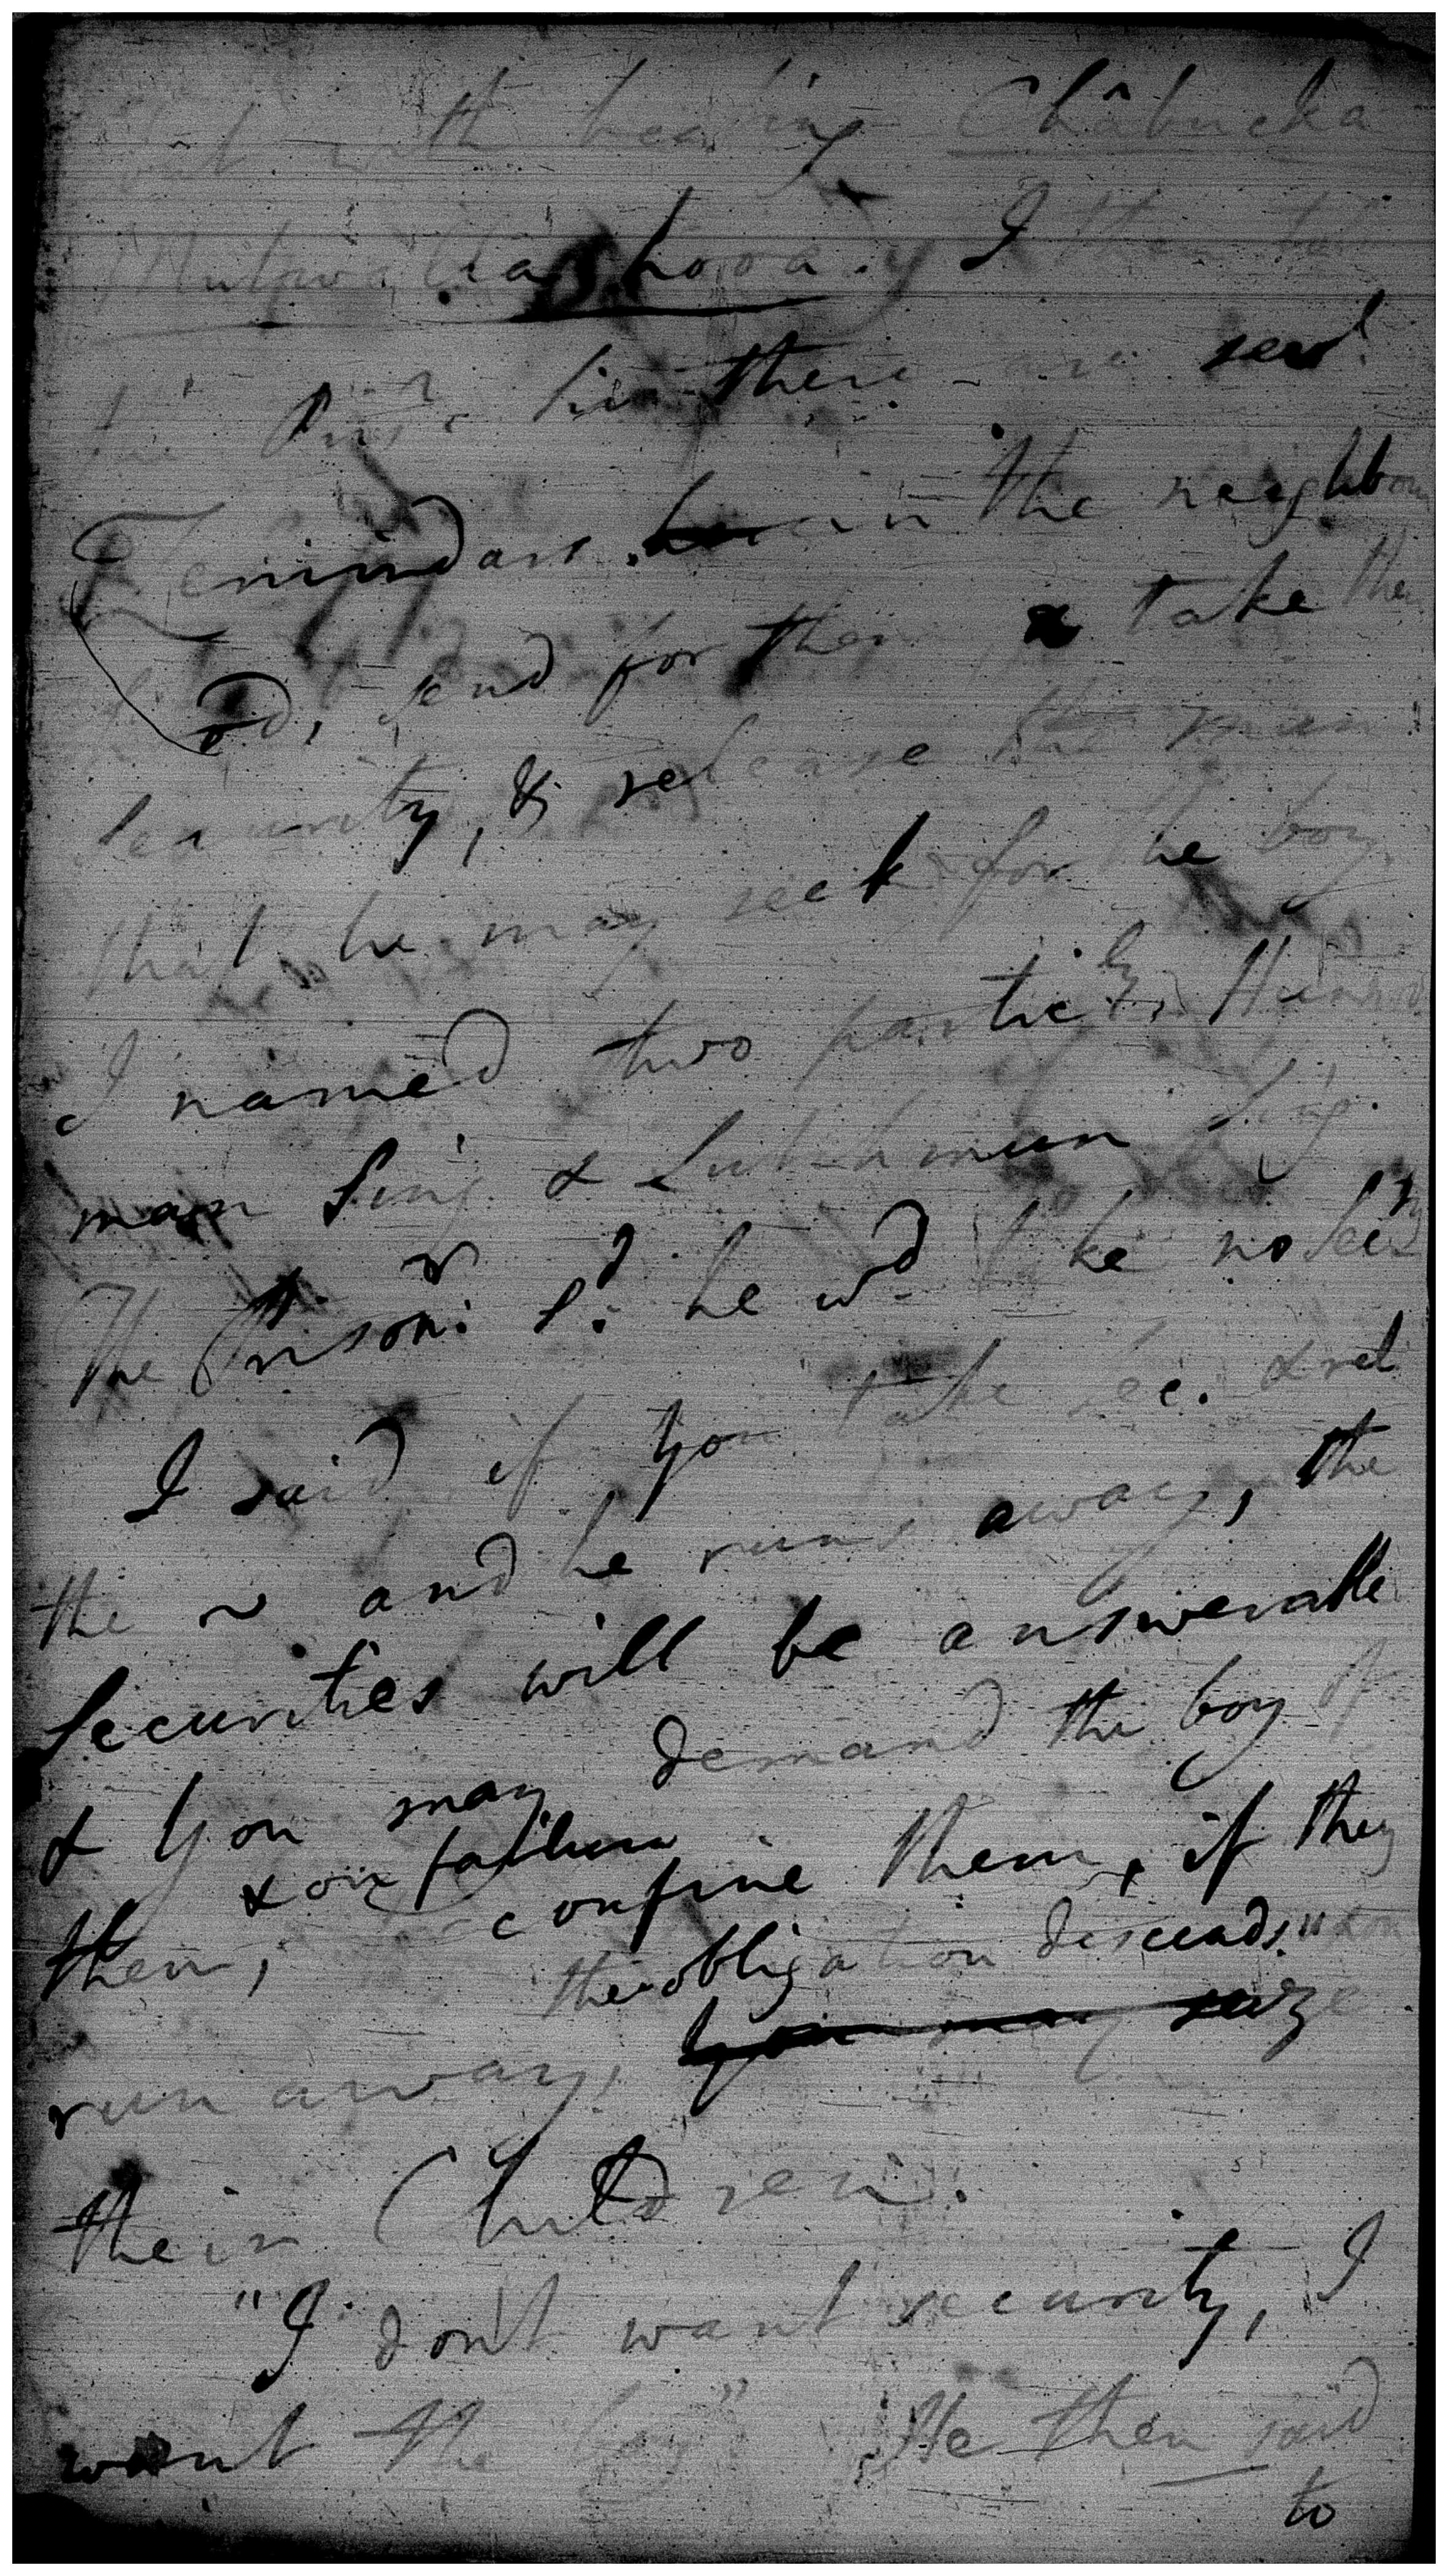 but with hearing Châbucka
I then told
the Prisr. Sir there are sevl.
Zemindars in the neighbour
od, send for them & take their
security, & release the man
that he may seek for the boy
I named two particly. Hunnoo
man Sing & Lutchmun Sing.
The Prisonr. Sd. he wd. take no secty
I said if you take sec. & rel
the ~ and he runs away, the
Securities will be answerable
& you may demand the boy of
& on failure
them, confine them, if they
the obligation descends upon
run away, you may seize
their Children.
"I don't want security, I
want the boy" He then said
to